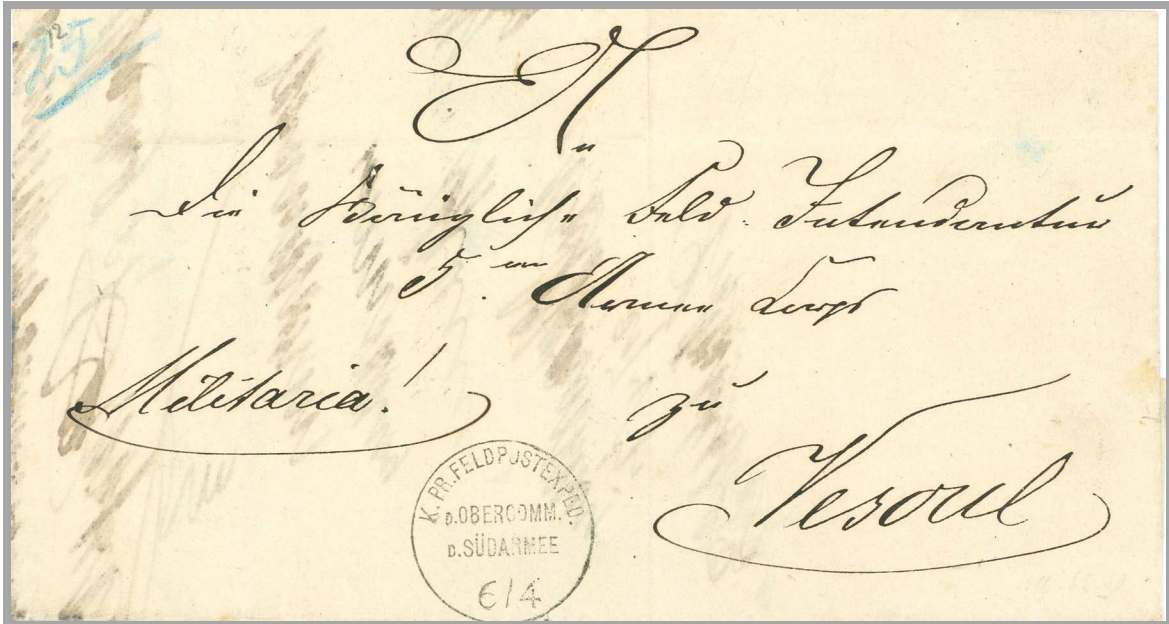 25
12
An
die Königliche Feld-Intendantur
5ten Armee Corps
Militaria!
zu
Vesoul
K. PR. FELDPOSTEXPED.
D. OBERCOMM.
D. SÜDARMEE
6/4